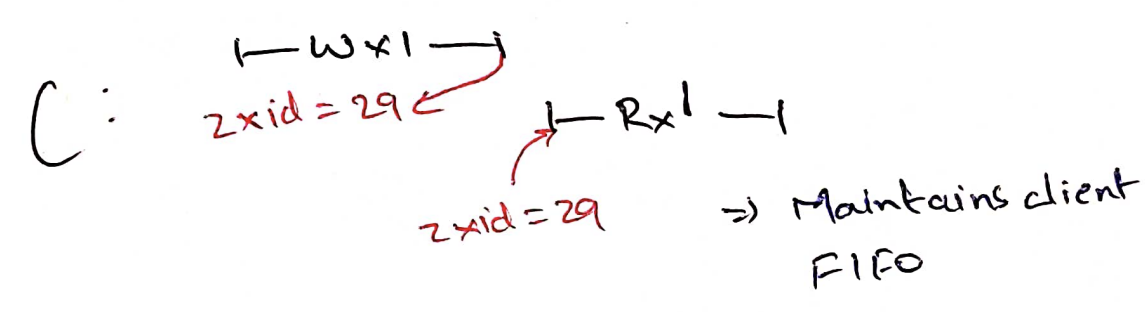 |— Wx1 —|
C:
zxid = 29
|— Rx1 —|
zxid = 29
=> Maintains client
FIFO